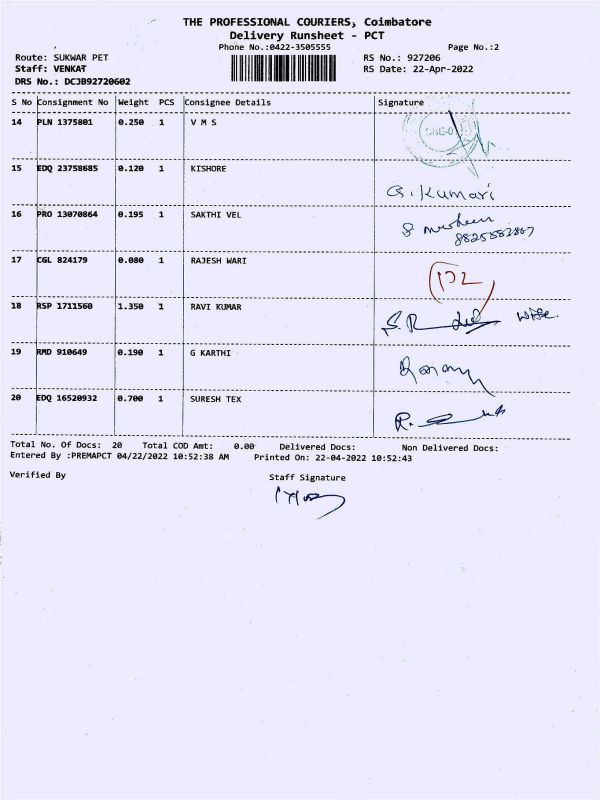 THE PROFESSIONAL COURIERS, Coimbatore
Delivery Runsheet - PCT
Phone No.:0422-3505555 Page No.:2
Route: SUKWAR PET RS No.: 927206
Staff: VENKAT RS Date: 22-Apr-2022
DRS No.: DCJB92720602
S No Consignment No Weight PCS Consignee Details Signature
14 PLN 1375801 0.250 1 V M S
15 EDQ 23758685 0.120 1 KISHORE
G. Kumari
16 PRO 13070864 0.195 1 SAKTHI VEL
17 CGL 824179 0.080 1 RAJESH WARI
18 RSP 1711560 1.350 1 RAVI KUMAR
wife
19 RMD 910649 0.190 1 G KARTHI
20 EDQ 16520932 0.700 1 SURESH TEX
Total No. Of Docs: 20 Total COD Amt: 0.00 Delivered Docs: Non Delivered Docs:
Entered By :PREMAPCT 04/22/2022 10:52:38 AM Printed On: 22-04-2022 10:52:43
Verified By Staff Signature